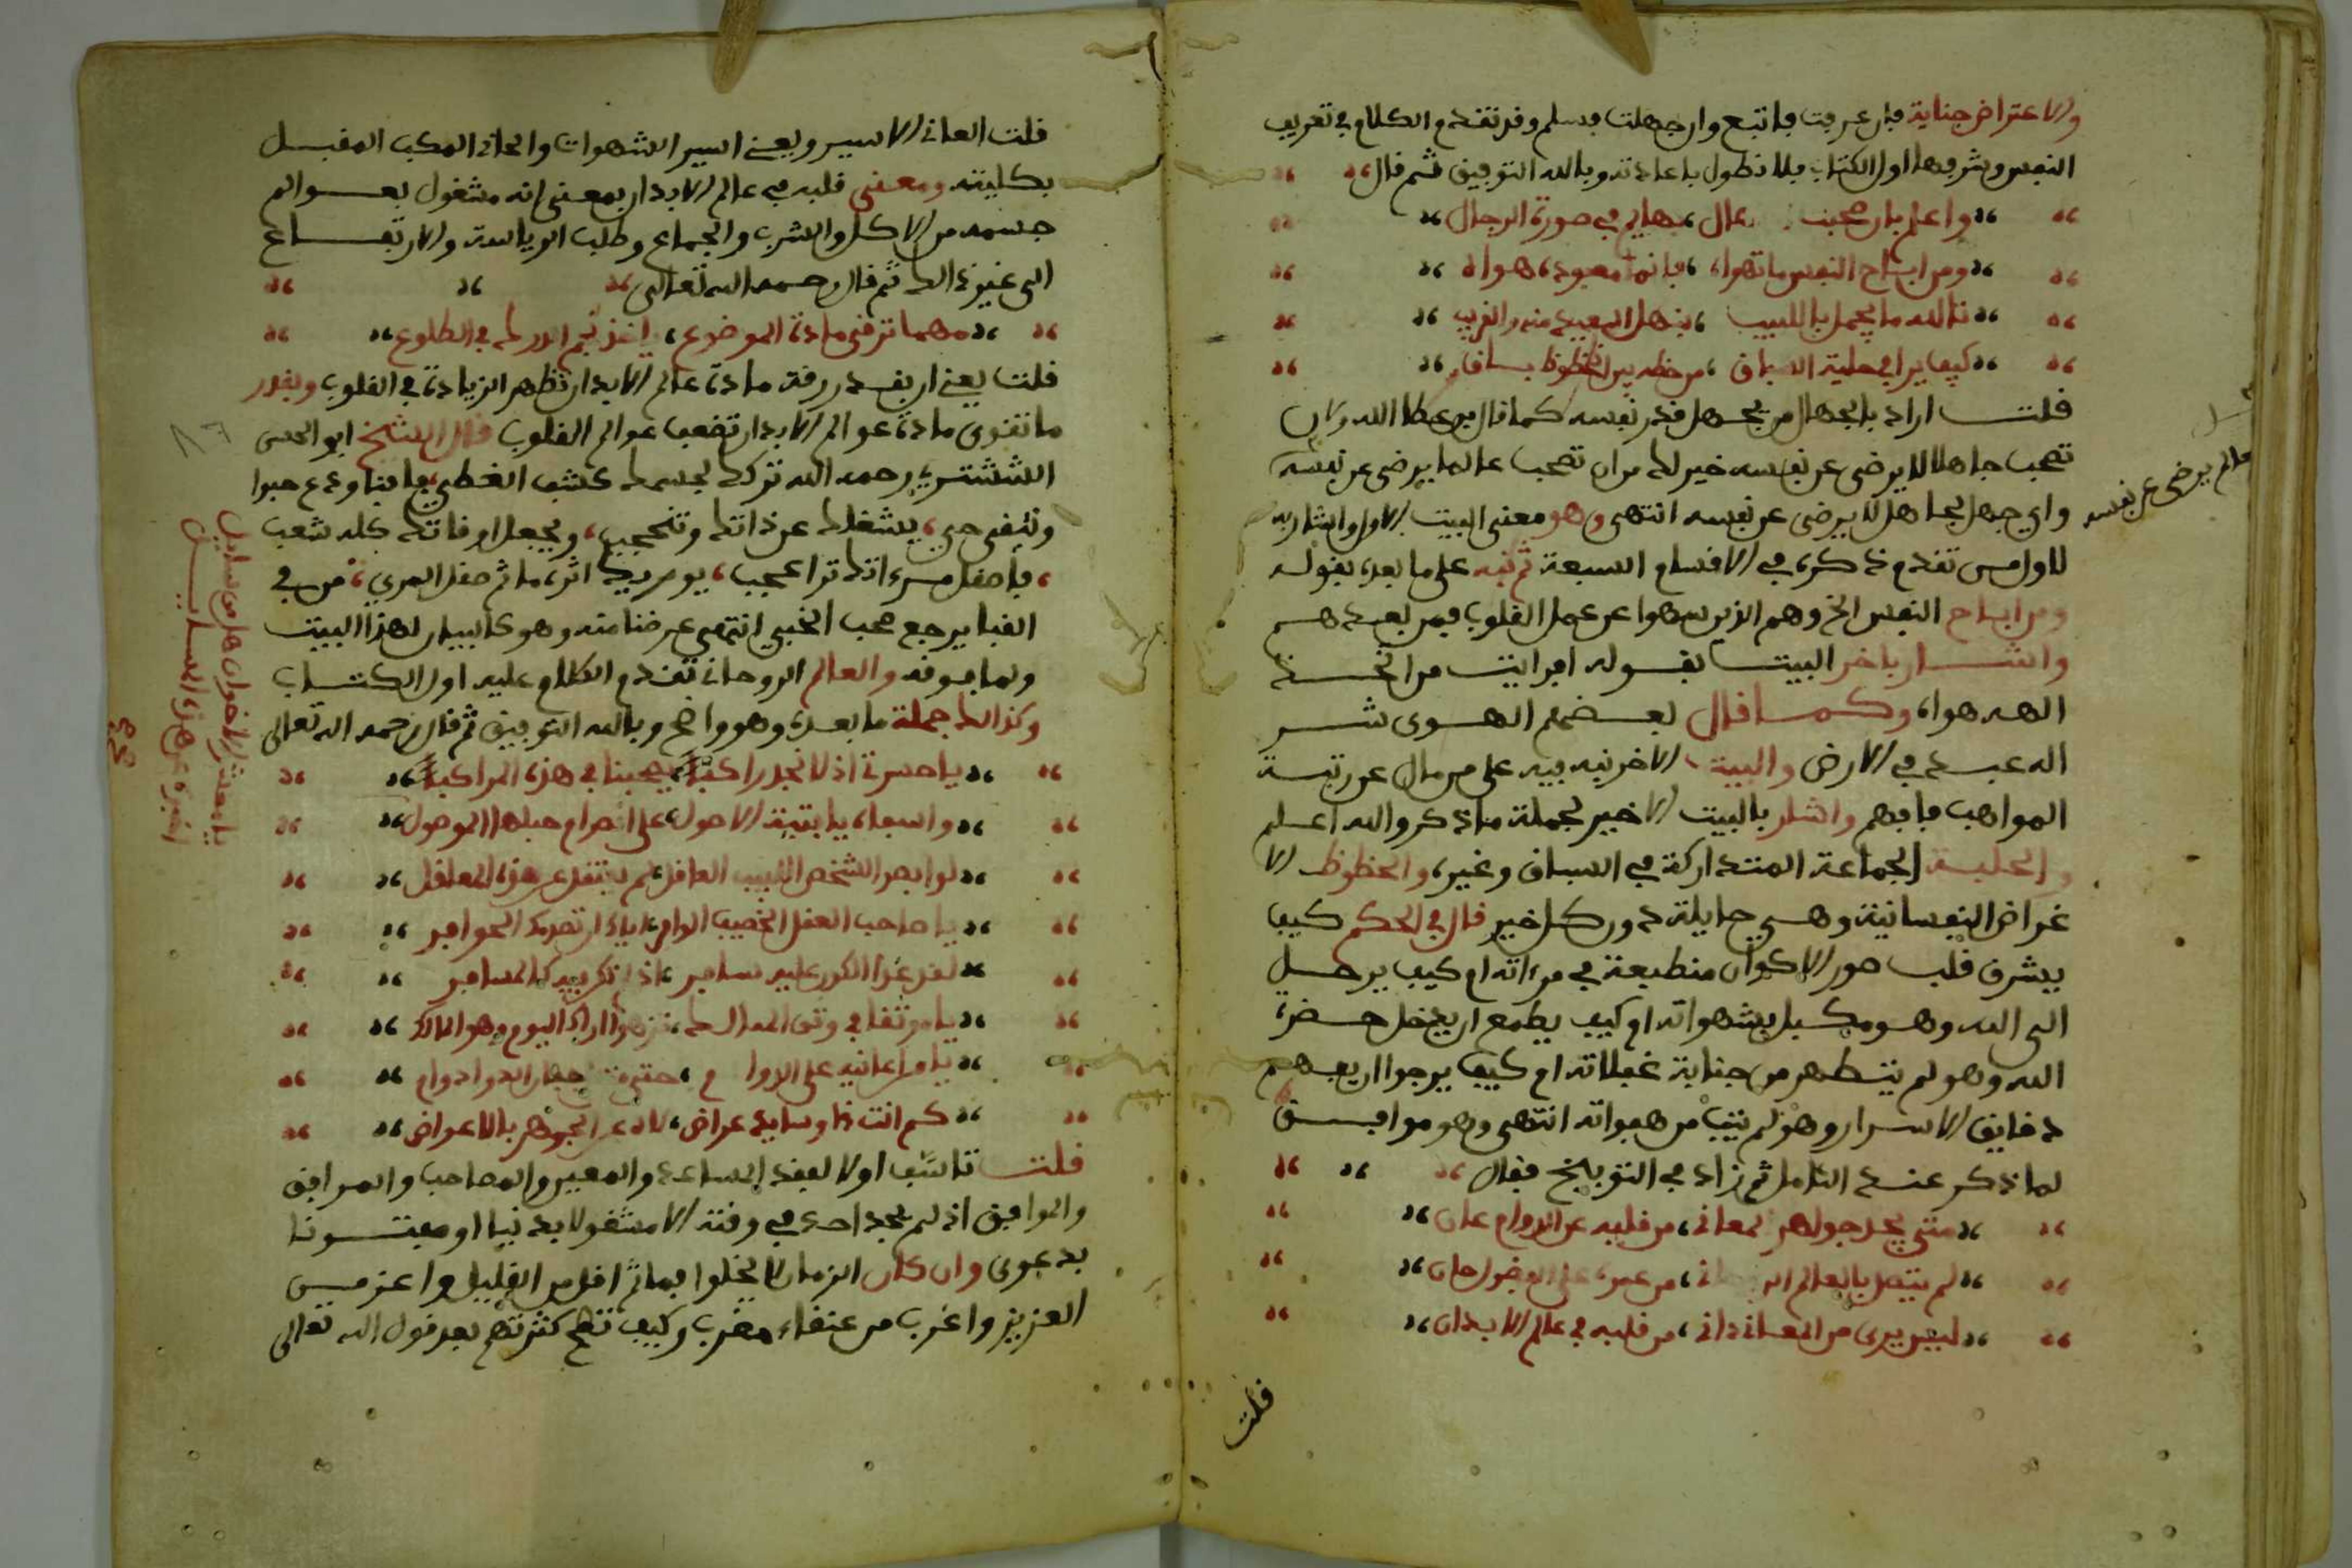 والاعتراض جناية فإن عرفت فاتبع وان جهلت فسلم وقد تقدم الكلام في تعريف
النفس وشرفها اول الكتاب فلا نطول باعادته وبالله التوفيق ثم قال
واعلم بان عال بهايم في صورة الرجال
ومن اباح النفس ما تهواه فانما معبوده هواه
تالله ما يجمل باللبيب ينهل البعيد منه والقريب
كيف يرا في حلبة السباق من حظه من الحظوظ باق
قلت اراد بالجهال من يجهل قدر نفسه كما قال بن عطا الله ولان
تصحب جاهلا لا يرضى عن نفسه خير لك من ان تصحب عالما يرضى عن نفسه
واي جهل لجاهل لا يرضى عن نفسه انتهى وهو معنى البيت الاول واشار به
للاول من تقدم ذكره في الاقسام السبعة ثم نبه على ما بعده بقوله
ومن اباح النفس الخ وهم الذين سهوا عن عمل القلوب فمن بعدهم
واشار باخر البيت بقوله افرايت من اتخذ
الهه هواه وكما قال بعضهم الهوى شر
اله عبد في الارض والبيت الاخر نبه فيه على من مال عن رتبة
المواهب فافهم واشار بالبيت الاخير لجملة ما ذكر والله اعلم
والحلبة الجماعة المتداركة في السباق وغيره والحظوظ الا
غراض النفسانية وهي حايلة دون كل خير قال في الحكم كيف
يشرق قلب صور الاكوان منطبعة في مرءاته ام كيف يرحل
الى الله وهو مكبل بشهواته ام كيف يطمع ان يدخل حضرة
الله وهو لم يتطهر من جنابة غفلاته ام كيف يرجوا ان يفهم
دقايق الاسرار وهو لم يتب من هفواته انتهى وهو موافق
لما ذكر عند التامل ثم زاد في التوبيخ فقال
متى يحد جوهر المعانى من قلبه عن الدوام عان
لم يتصل بالعالم من عمره على الفضول حان
ليس يرى من المعانى دانى من قلبه في عالم الابدان
قلت
عالم يرضى عن نفسه
قلت العانى الاسير ويعنى اسير الشهوات والحانى المكب المقبل
بكليته ومعنى قلبه في عالم الابدان بمعنى انه مشغول بعوالم
جسمه من الاكل والشرب والجماع وطلب الرياسة والارتفاع
الى غير ذالك ثم قال رحمه الله تعالى
مهما ترقى مادة الموضوع نجم الدرك في الطلوع
قلت يعني ان بقدر رقة مادة عالم الابدان تظهر الزيادة في القلوب وبقدر
ما تتقوى مادة عوالم الابدان تضعف عوالم القلوب قال الشيخ ابو الحسن
الششتري رحمه الله تركك لجسمك كشف الغطى فافنا ودع
وتبقى حي يشغلك عن ذاتك وتنحجب ويجعل اوقاتك كله شعب
فاصقل مرءاتك ترا عجب يوم يريك اثره ما ثم صقل المرى من في
الفنا يرجع محب الحبى انتهى غرضنا منه وهو كالبيان لهذا البيت
ولما فوقه والعالم الروحانى تقدم الكلام عليه اول الكتاب
وكذالك جملة ما بعده وهو واضح وبالله التوفيق ثم قال رحمه الله تعالى
يا حسرة اذ لا نجد راكبا يصحبنا في هذه المراكبا
وااسفاه يا بنية الاصول على انصرام حبلها الموصول
لو ابصر الشخص اللبيب العاقل لم ينتقل عن هذه المعاقل
يا صاحب العقل الحصيف الوافر اياك ان تصدمك الحوافر
يا موثقا في وثق المهالك اراك اليوم وهو المالك
كم انت ذا وسايد عراض لاه عن الجوهر بالاعراض
قلت تاسف اولا لفقد المساعد والمعين والمصاحب والمرافق
والموافق اذ لم يجد احد في وقته الا مشغولا بدنيا او مفتونا
بدعوى وان كان الزمان لا يخلوا فما ثم اقل من القليل واعز من
العزيز واغرب من عنقاء مغرب وكيف تصح كثرتهم بعد قول الله تعالى
يا معشر الاخوان هل من سايل
اخبره عن هذه المسايل